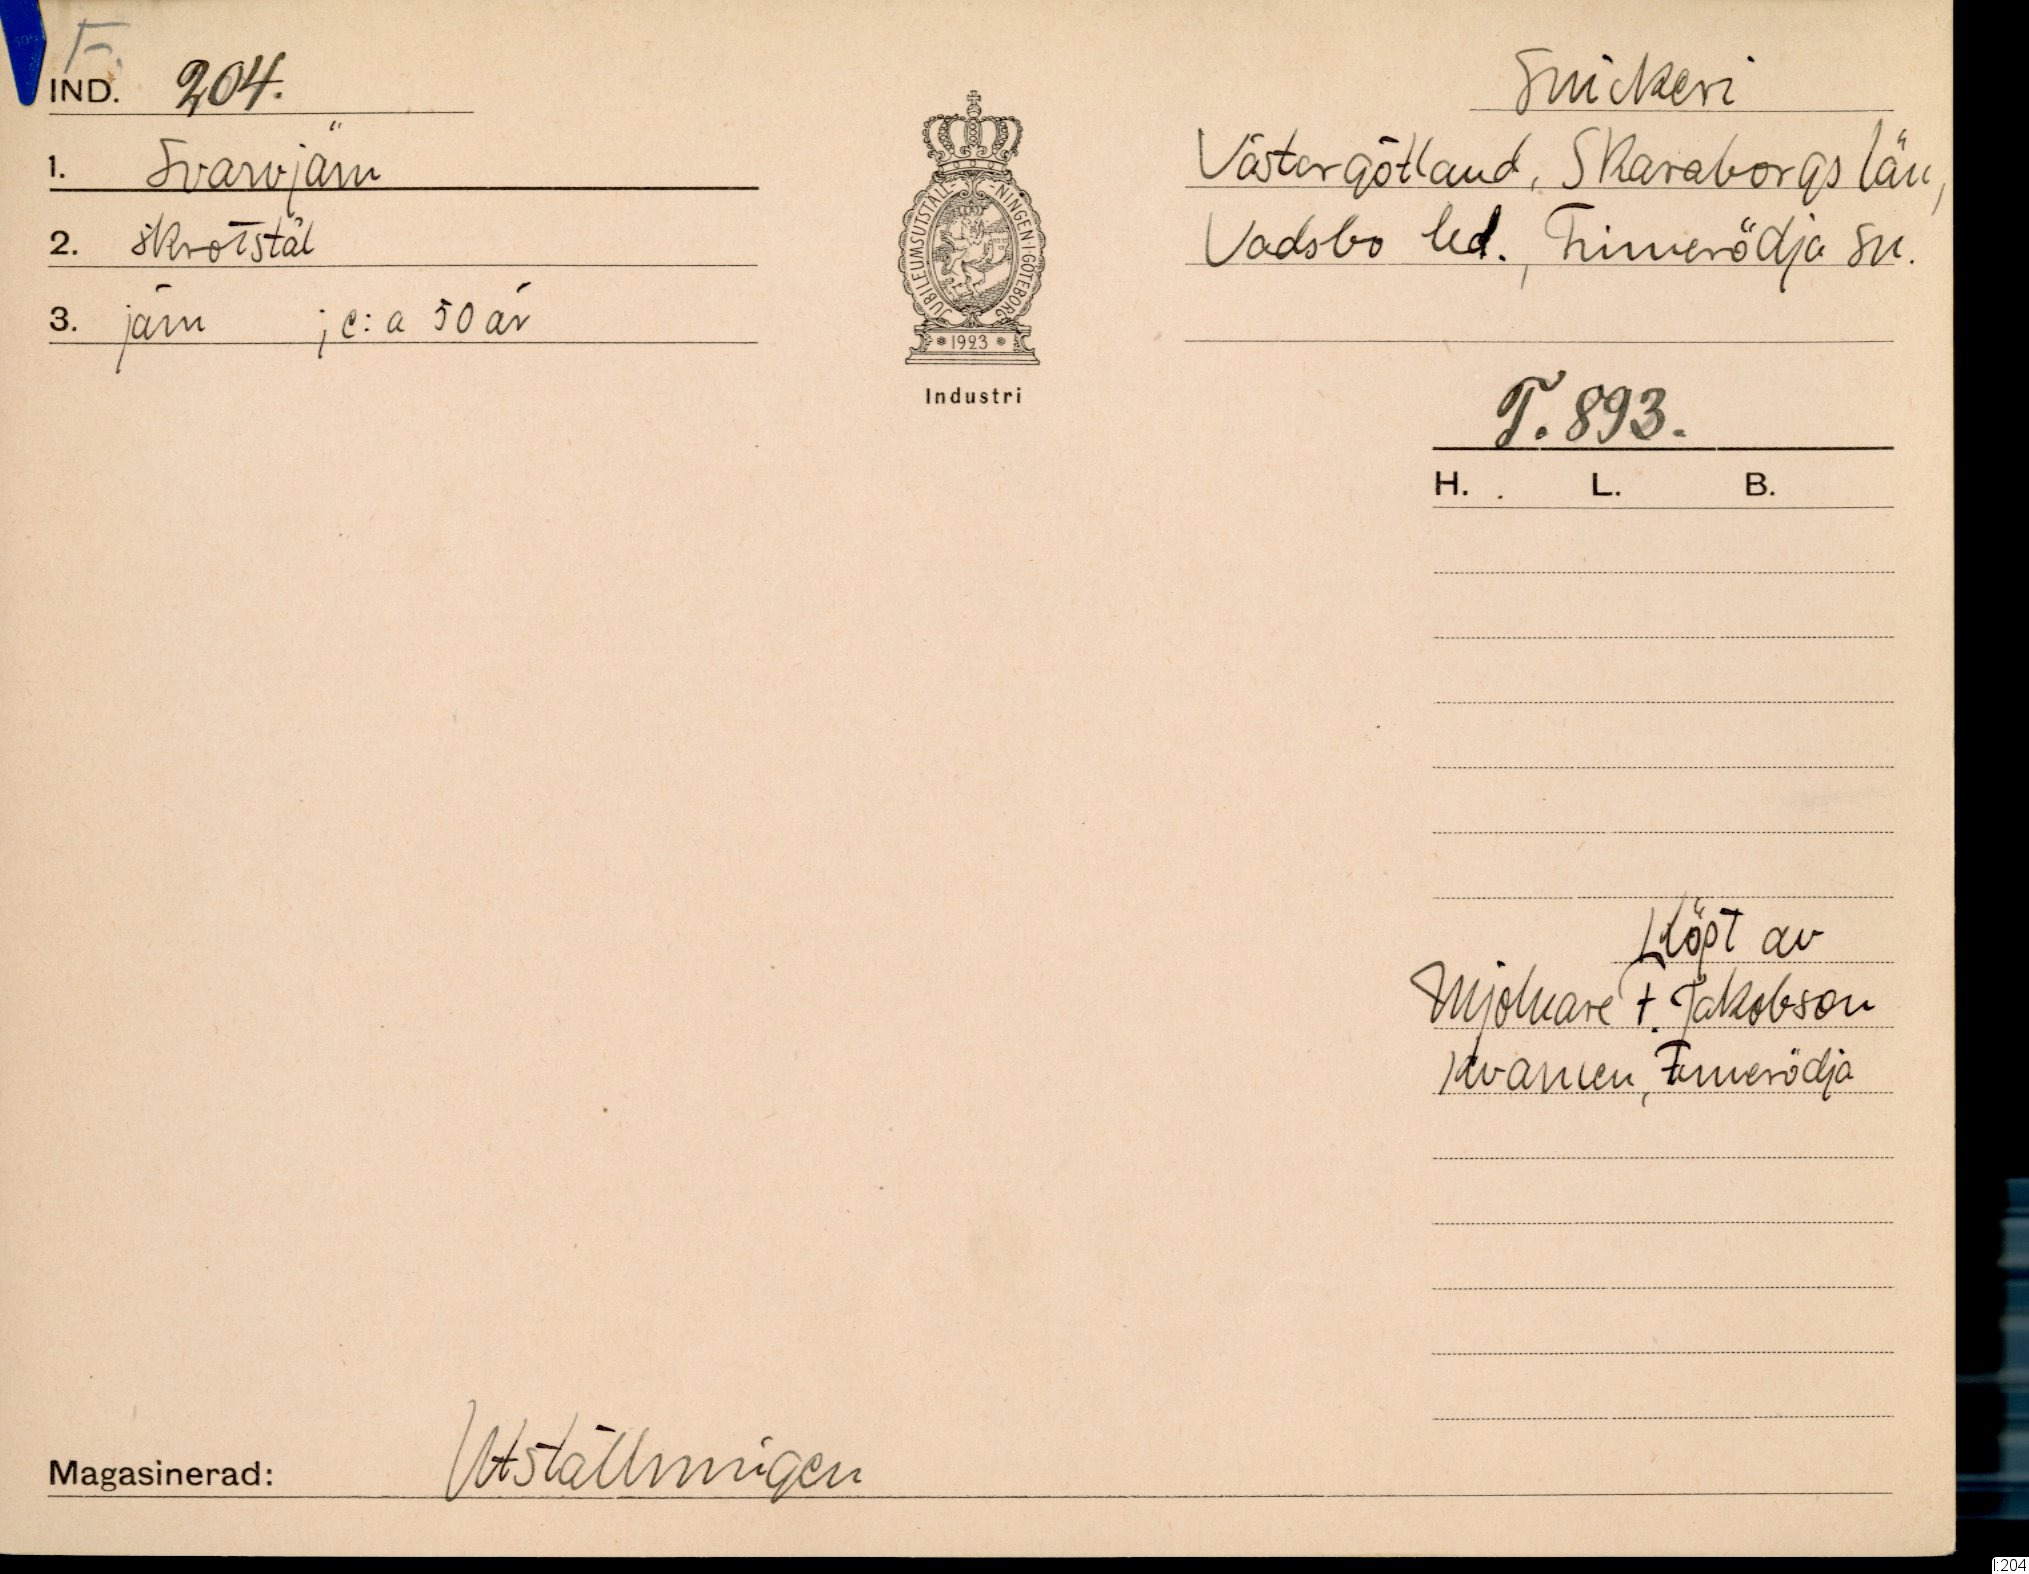 F.
IND. 204.
1. Svarvjärn
2. skrotstål
3. järn ; c:a 50 år
JUBILEUMSUTSTÄLL-NINGEN·I·GÖTEBORG
* 1923 *
Industri
Snickeri
Västergötland, Skaraborgs län,
Vadsbo hd., Finnerödja sn.
T. 893.
H. L. B.
Köpt av
Mjölnare F. Jakobson
Kvarnen, Finnerödja
Magasinerad: Utställningen
I:204